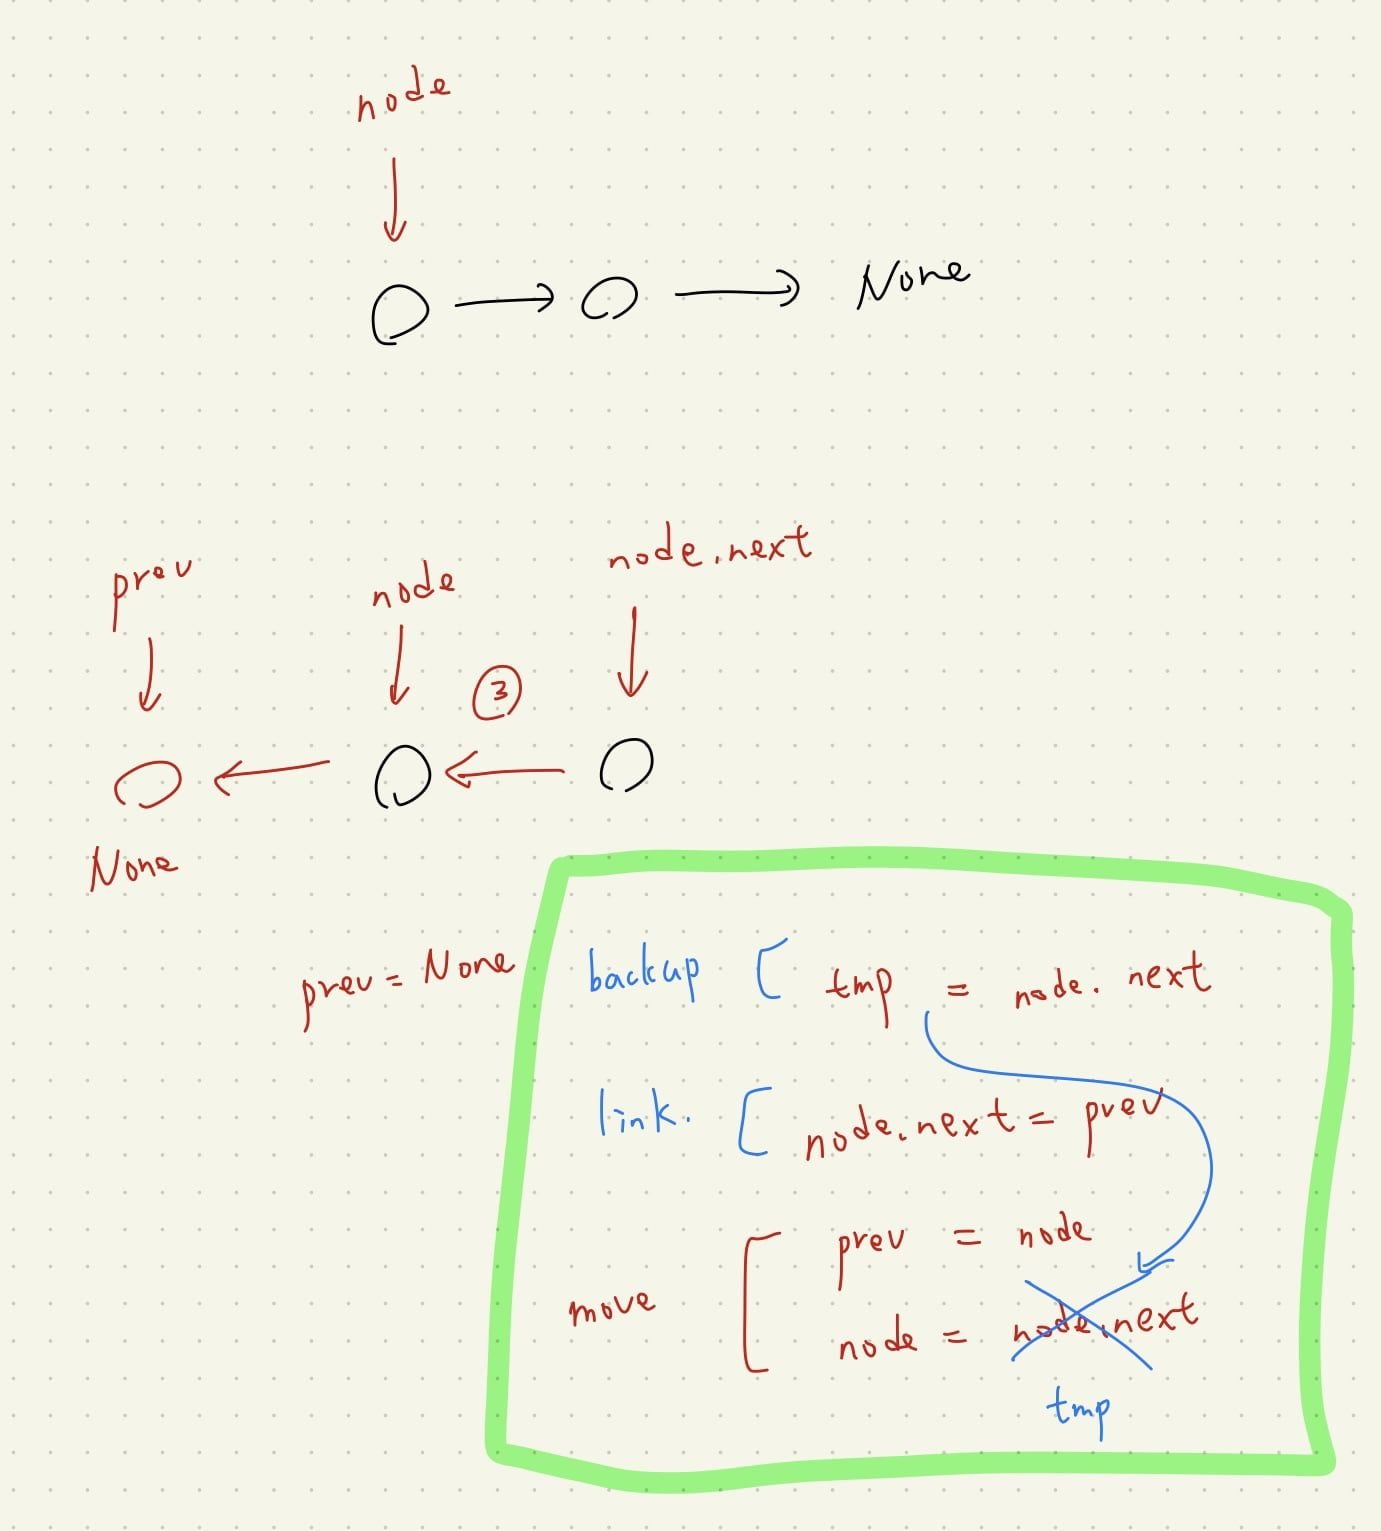 node
None
prev
node
node.next
3
None
prev = None
backup [ tmp = node.next
link. [ node.next = prev
move [ prev = node
node = node.next
tmp